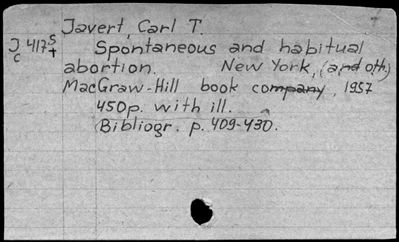 Javert, Carl T.
J 417 s
c t
Spontaneous and habitual
abortion. New York, (and oth.)
MacGraw-Hill book company, 1957
450p. with ill.
(Bibliogr. p. 409-430.